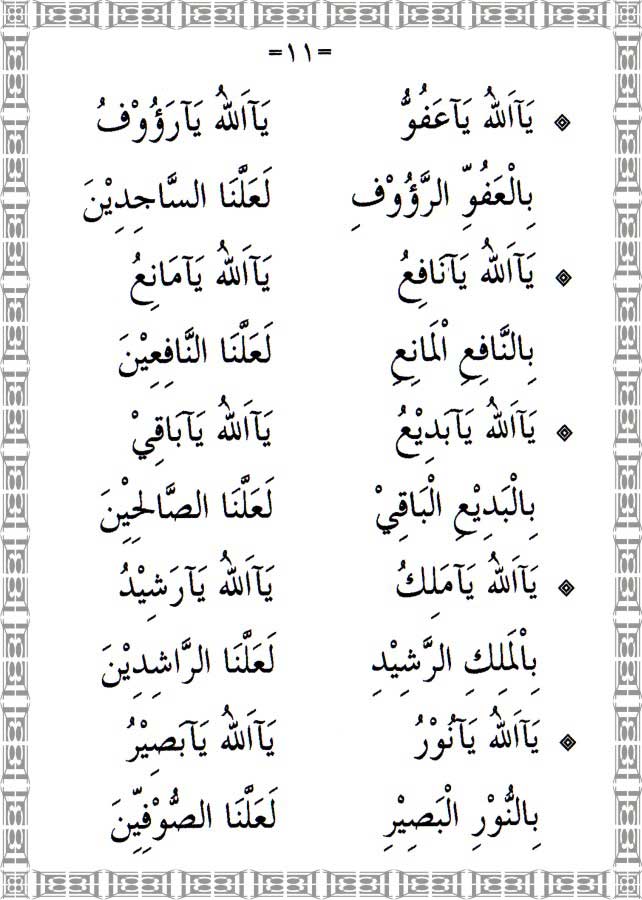 =١١=
يَآاَللهُ يَآعَفُوُّ يَآاَللهُ يَآرَؤُوْفُ
بِالْعَفُوِّ الرَّؤُوْفِ لَعَلَّنَا السَّاجِدِيْنَ
يَآاَللهُ يَآنَافِعُ يَآاَللهُ يَآمَانِعُ
بِالنَّافِعِ الْمَانِعِ لَعَلَّنَا النَّافِعِيْنَ
يَآاَللهُ يَآبَدِيْعُ يَآاَللهُ يَآبَاقِيْ
بِالْبَدِيْعِ الْبَاقِيْ لَعَلَّنَا الصَّالِحِيْنَ
يَآاَللهُ يَآمَلِكُ يَآاَللهُ يَآرَشِيْدُ
بِالْمَلِكِ الرَّشِيْدِ لَعَلَّنَا الرَّاشِدِيْنَ
يَآاَللهُ يَآنُوْرُ يَآاَللهُ يَآبَصِيْرُ
بِالنُّوْرِ الْبَصِيْرِ لَعَلَّنَا الصُّوْفِيِّنَ